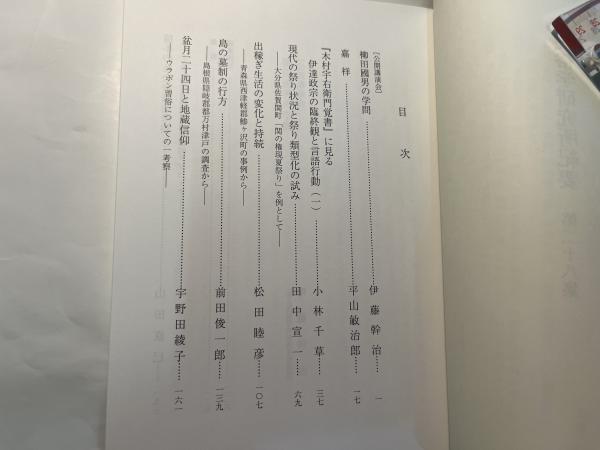 目次
［公開講演会］
柳田國男の学問……伊藤幹治……一
嘉祥……平山敏治郎……一七
『木村宇右衛門覚書』に見る
伊達政宗の臨終観と言語行動（一）……小林千草……三七
現代の祭り状況と祭り類型化の試み……田中宣一……六九
――大分県佐賀関町「関の権現夏祭り」を例として――
出稼ぎ生活の変化と持続……松田睦彦……一〇七
――青森県西津軽郡鰺ヶ沢町の事例から――
島の墓制の行方……前田俊一郎……一三九
――島根県隠岐郡都万村津戸の調査から――
盆月二十四日と地蔵信仰……宇野田綾子……一六一
――ウラボン習俗についての一考察――